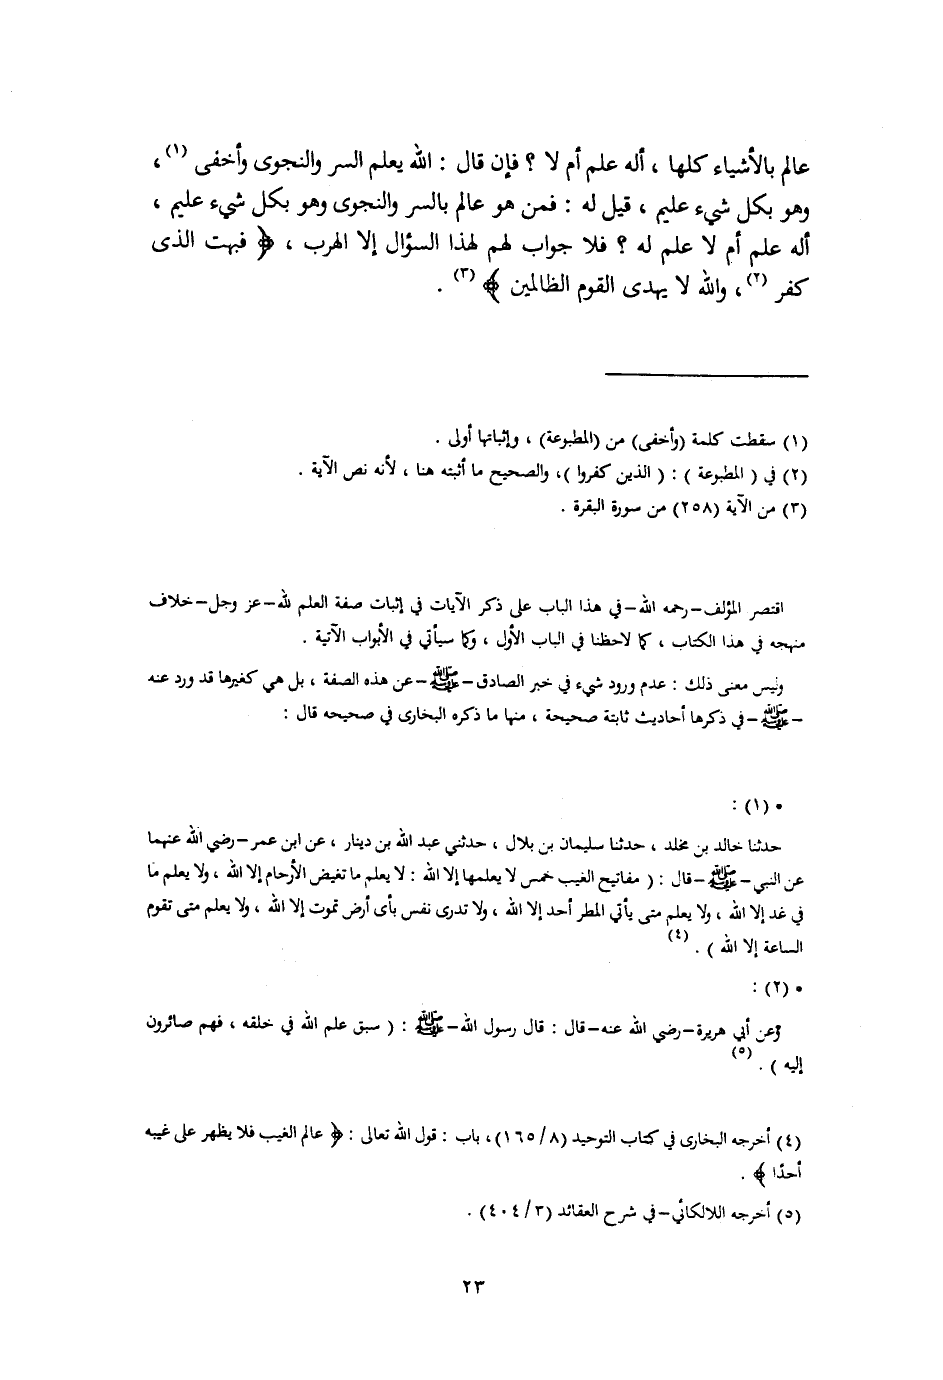 عالم بالأشياء كلها ، أله علم أم لا ؟ فإن قال : الله يعلم السر والنجوى وأخفى (١) ،
وهو بكل شيء عليم ، قيل له : فمن هو عالم بالسر والنجوى وهو بكل شيء عليم ،
أله علم أم لا علم له ؟ فلا جواب لهم لهذا السؤال إلا الهرب ، ﴿ فبهت الذى
كفر (٢) ، والله لا يهدى القوم الظالمين ﴾ (٣) .
(١) سقطت كلمة (وأخفى) من (المطبوعة) ، وإثباتها أولى .
(٢) في ( المطبوعة ) : ( الذين كفروا )، والصحيح ما أثبته هنا ، لأنه نص الآية .
(٣) من الآية (٢٥٨) من سورة البقرة .
اقتصر المؤلف–رحمه الله–في هذا الباب على ذكر الآيات في إثبات صفة العلم لله–عز وجل–خلاف
منهجه في هذا الكتاب ، كما لاحظنا في الباب الأول ، وكما سيأتي في الأبواب الآتية .
وليس معنى ذلك : عدم ورود شيء في خبر الصادق–ﷺ–عن هذه الصفة ، بل هي كغيرها قد ورد عنه
–ﷺ–في ذكرها أحاديث ثابتة صحيحة ، منها ما ذكره البخارى في صحيحه قال :
• (١) :
حدثنا خالد بن مخلد ، حدثنا سليمان بن بلال ، حدثني عبد الله بن دينار ، عن ابن عمر–رضي الله عنهما
عن النبي–ﷺ–قال : ( مفاتيح الغيب خمس لا يعلمها إلا الله : لا يعلم ما تغيض الأرحام إلا الله ، ولا يعلم ما
في غد إلا الله ، ولا يعلم متى يأتي المطر أحد إلا الله ، ولا تدرى نفس بأى أرض تموت إلا الله ، ولا يعلم متى تقوم
الساعة إلا الله ) . (٤)
• (٢) :
وعن أبي هريرة–رضي الله عنه–قال : قال رسول الله–ﷺ : ( سبق علم الله في خلقه ، فهم صائرون
إليه ) . (٥)
(٤) أخرجه البخارى في كتاب التوحيد (٨/١٦٥)، باب : قول الله تعالى : ﴿ عالم الغيب فلا يظهر على غيبه
أحدًا ﴾ .
(٥) أخرجه اللالكائي–في شرح العقائد (٣/٤٠٤) .
٢٣